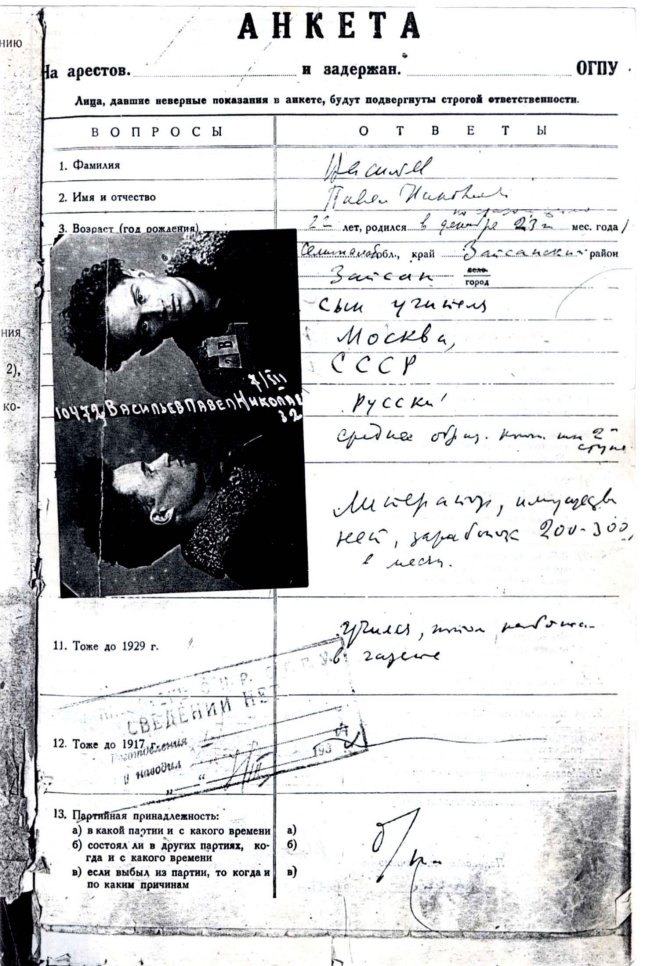 АНКЕТА
На арестов. и задержан. ОГПУ
Лица, давшие неверные показания в анкете, будут подвергнуты строгой ответственности.
ВОПРОСЫ ОТВЕТЫ
1. Фамилия Васильев
2. Имя и отчество Павел Николаев
3. Возраст (год рождения) 22 лет, родился в декабре 23 мес. года
обл., край Зайсанский район
Зайсан село город
сын учителя
Москва,
СССР
Русский
среднее образ.
10472, ВАСИЛЬЕВ ПАВЕЛ НИКОЛАЕ 7/III 32
Литератор, имущества
нет, заработок 200-300
в месяц.
11. Тоже до 1929 г. учился, потом работа
в газете
СВЕДЕНИЙ НЕ
12. Тоже до 1917 г.
и находил
193
13. Партийная принадлежность:
а) в какой партии и с какого времени а)
б) состоял ли в других партиях, ко- б)
гда и с какого времени
в) если выбыл из партии, то когда и в)
по каким причинам
б/п
нию
ния
2),
ко-